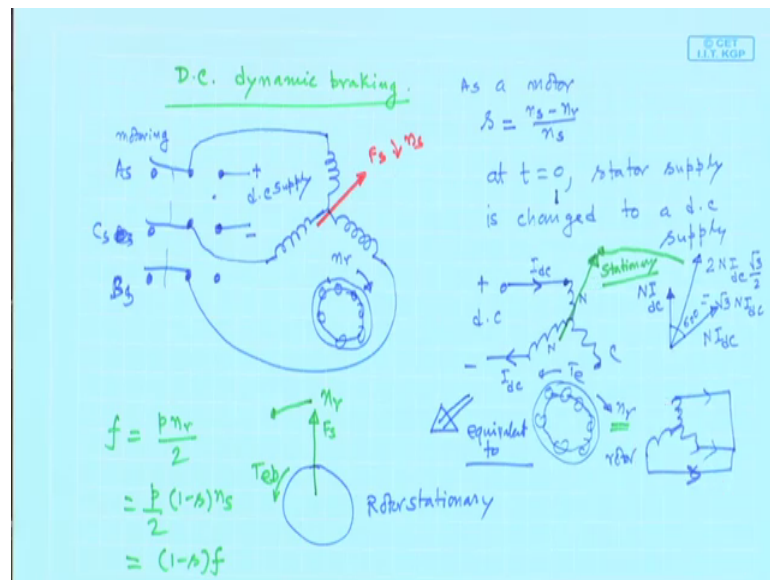 © CET
I.I.T. KGP
D.C. dynamic braking.
motoring
As
+
d.c supply
Cs
-
Bs
Fs ↓ ns
nr
As a motor
s = ns - nr / ns
at t=0, stator supply
is changed to a d.c
supply
+
Idc
d.c
-
Idc
N
N
C
Stationary
NIdc
60°
2NIdc √3/2
= √3 NIdc
NIdc
Te
nr
equivalent
to
rotor
f = pnr / 2
= p/2 (1-s)ns
= (1-s)f
nr
Fs
Teb
Rotor stationary